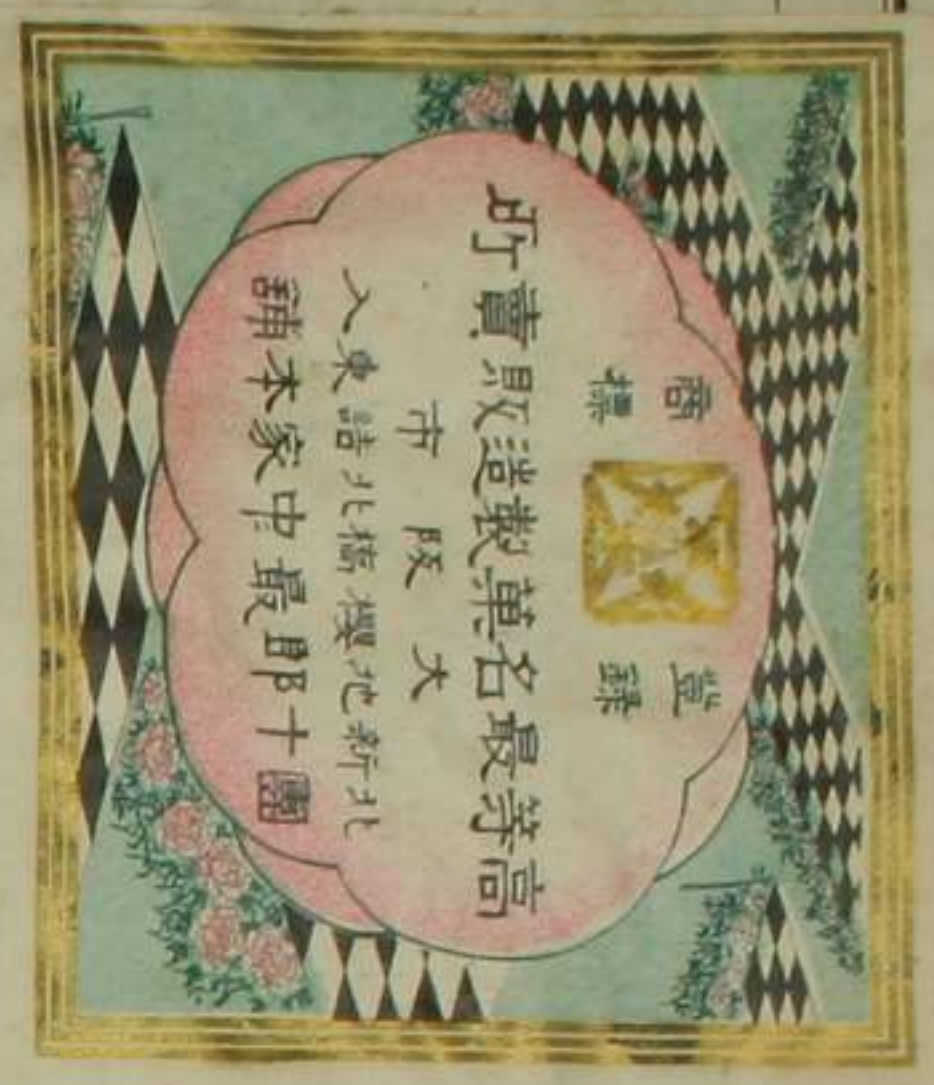 登録
商標
高等最名菓製造販賣所
大阪市
北新地櫻橋北詰東入
團十郎最中家本舗